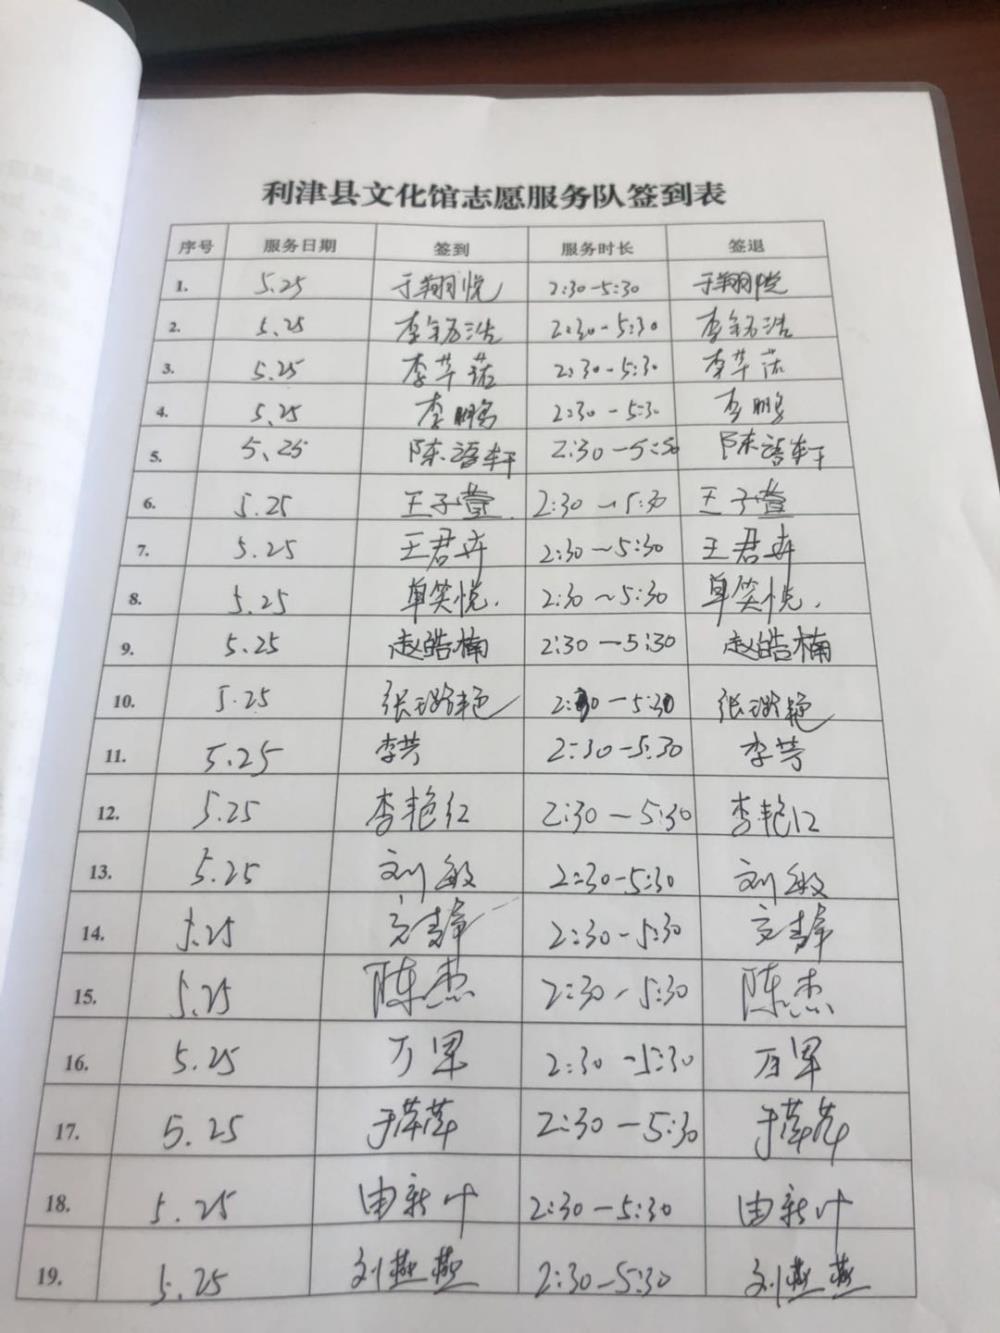 利津县文化馆志愿服务队签到表
序号 服务日期 签到 服务时长 签退
1. 5.25 于翔悦 2:30-5:30 于翔悦
2. 5.25 李钰浩 2:30-5:30 李钰浩
3. 5.25 李芊诺 2:30-5:30 李芊诺
4. 5.25 李鹏 2:30-5:30 李鹏
5. 5.25 陈语轩 2:30-5:30 陈语轩
6. 5.25 王子萱 2:30-5:30 王子萱
7. 5.25 王君卉 2:30~5:30 王君卉
8. 5.25 单笑悦. 2:30~5:30 单笑悦.
9. 5.25 赵皓楠 2:30-5:30 赵皓楠
10. 5.25 张璐艳 2:30-5:30 张璐艳
11. 5.25 李芳 2:30-5:30 李芳
12. 5.25 李艳红 2:30-5:30 李艳红
13. 5.25 刘敏 2:30-5:30 刘敏
14. 5.25 2:30-5:30
15. 5.25 陈杰 2:30-5:30 陈杰
16. 5.25 万里 2:30-5:30
17. 5.25 于萍萍 2:30-5:30 于萍萍
18. 5.25 由新叶 2:30-5:30 由新叶
19. 5.25 刘燕燕 2:30-5:30 刘燕燕